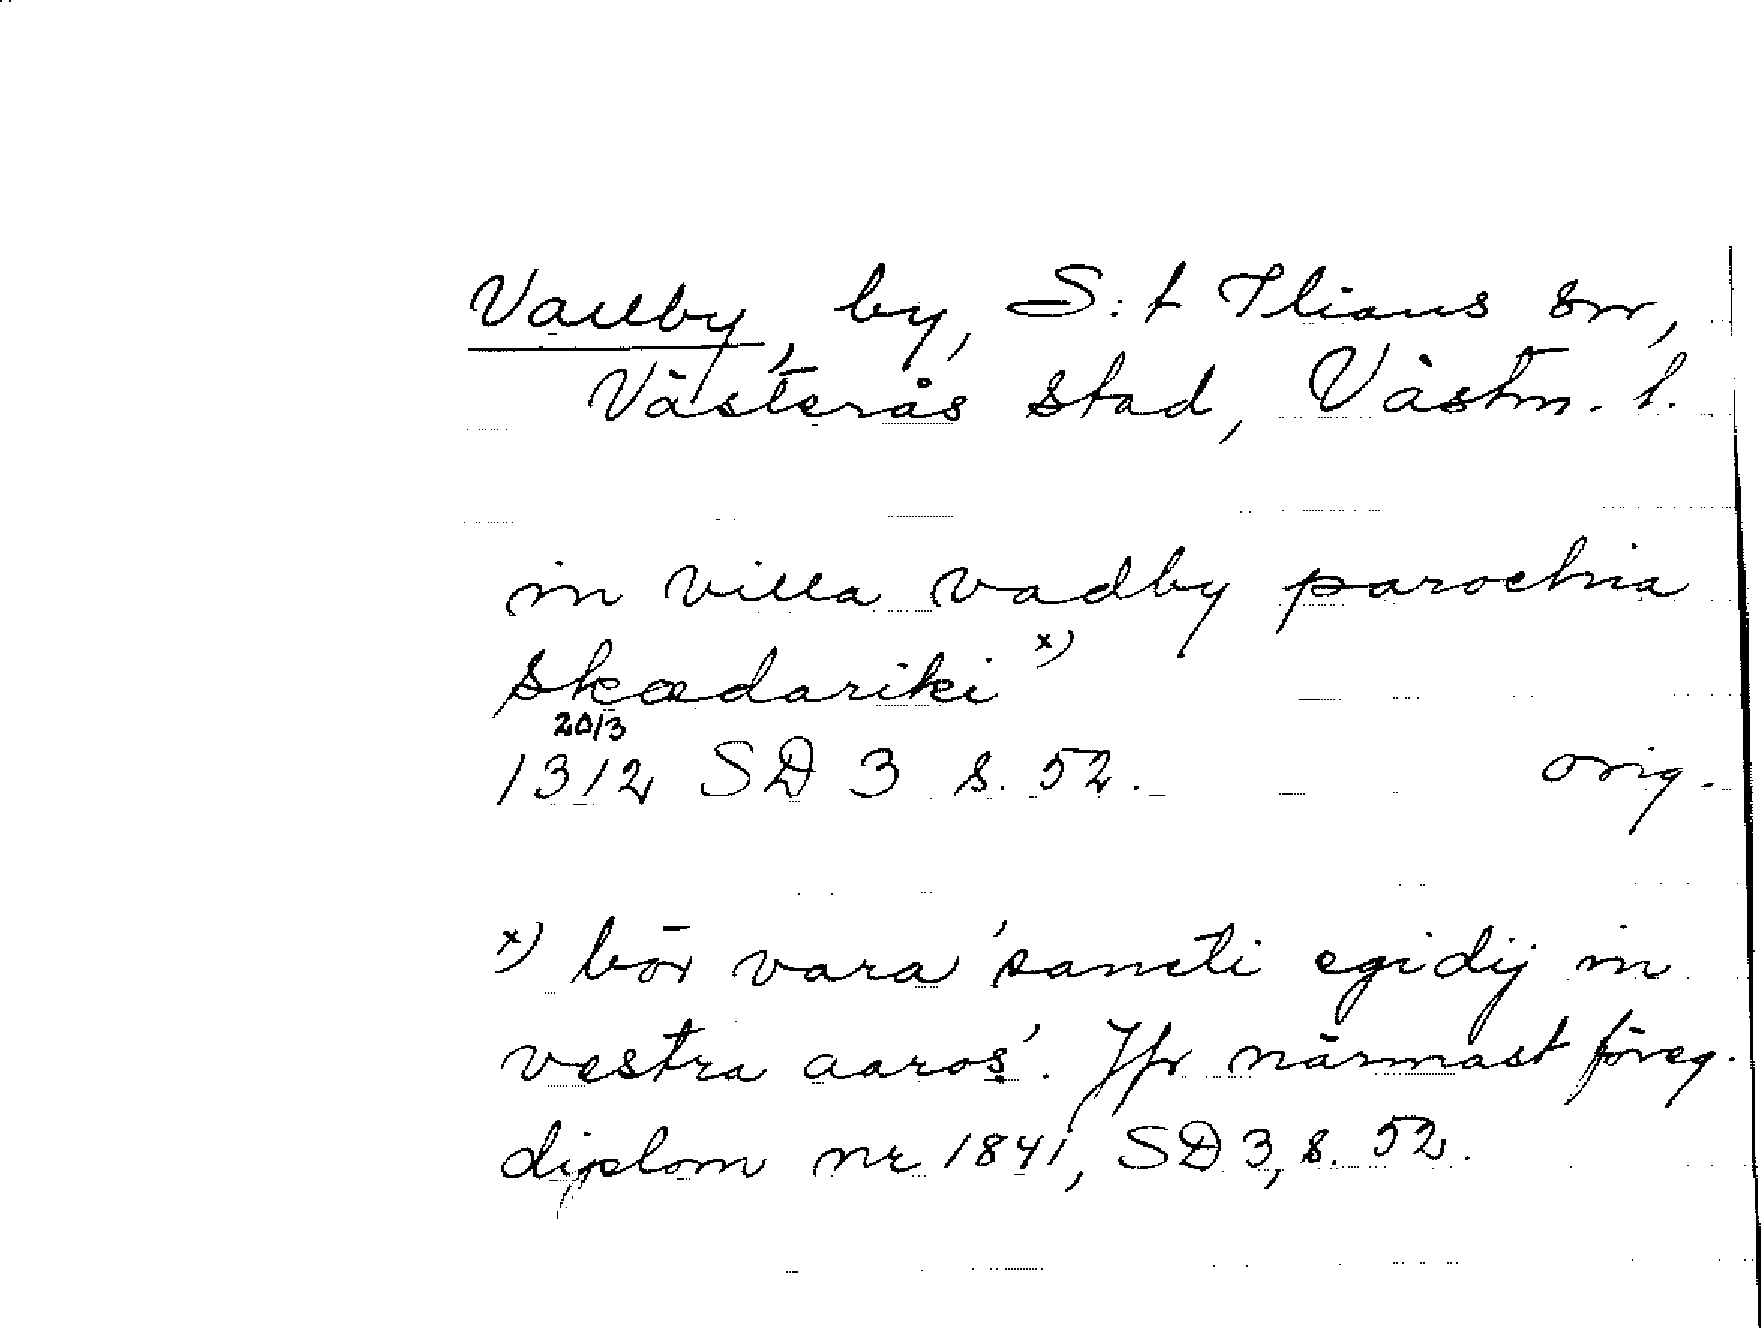 Vallby, by, S:t Ilians sn,
Västerås stad, Västm. l.
in villa vadby parochia
skædariki x)
20/3
1312 SD 3 s. 52. orig.
x) bör vara 'sancti egidij in
vestra aaros'. Jfr närmast föreg.
diplom nr 1841, SD 3, s. 52.